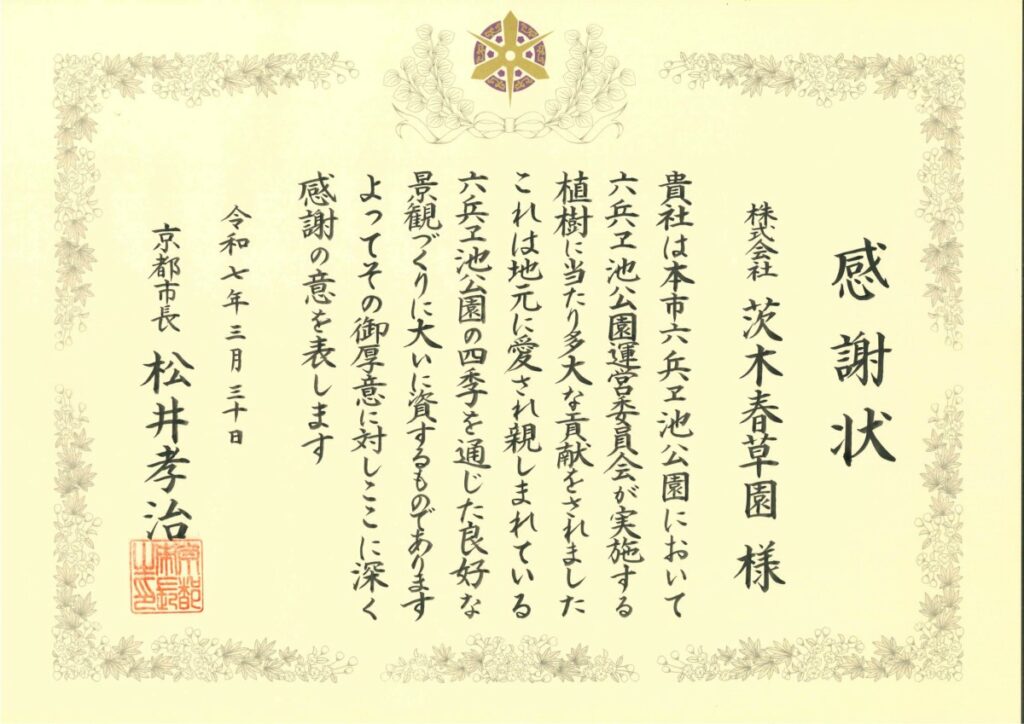 感謝状
株式会社 茨木春草園 様
貴社は本市六兵ヱ池公園において
六兵ヱ池公園運営委員会が実施する
植樹に当たり多大な貢献をされました
これは地元に愛され親しまれている
六兵ヱ池公園の四季を通じた良好な
景観づくりに大いに資するものであります
よってその御厚意に対しここに深く
感謝の意を表します
令和七年三月三十日
京都市長 松井孝治
京都
市長
之印